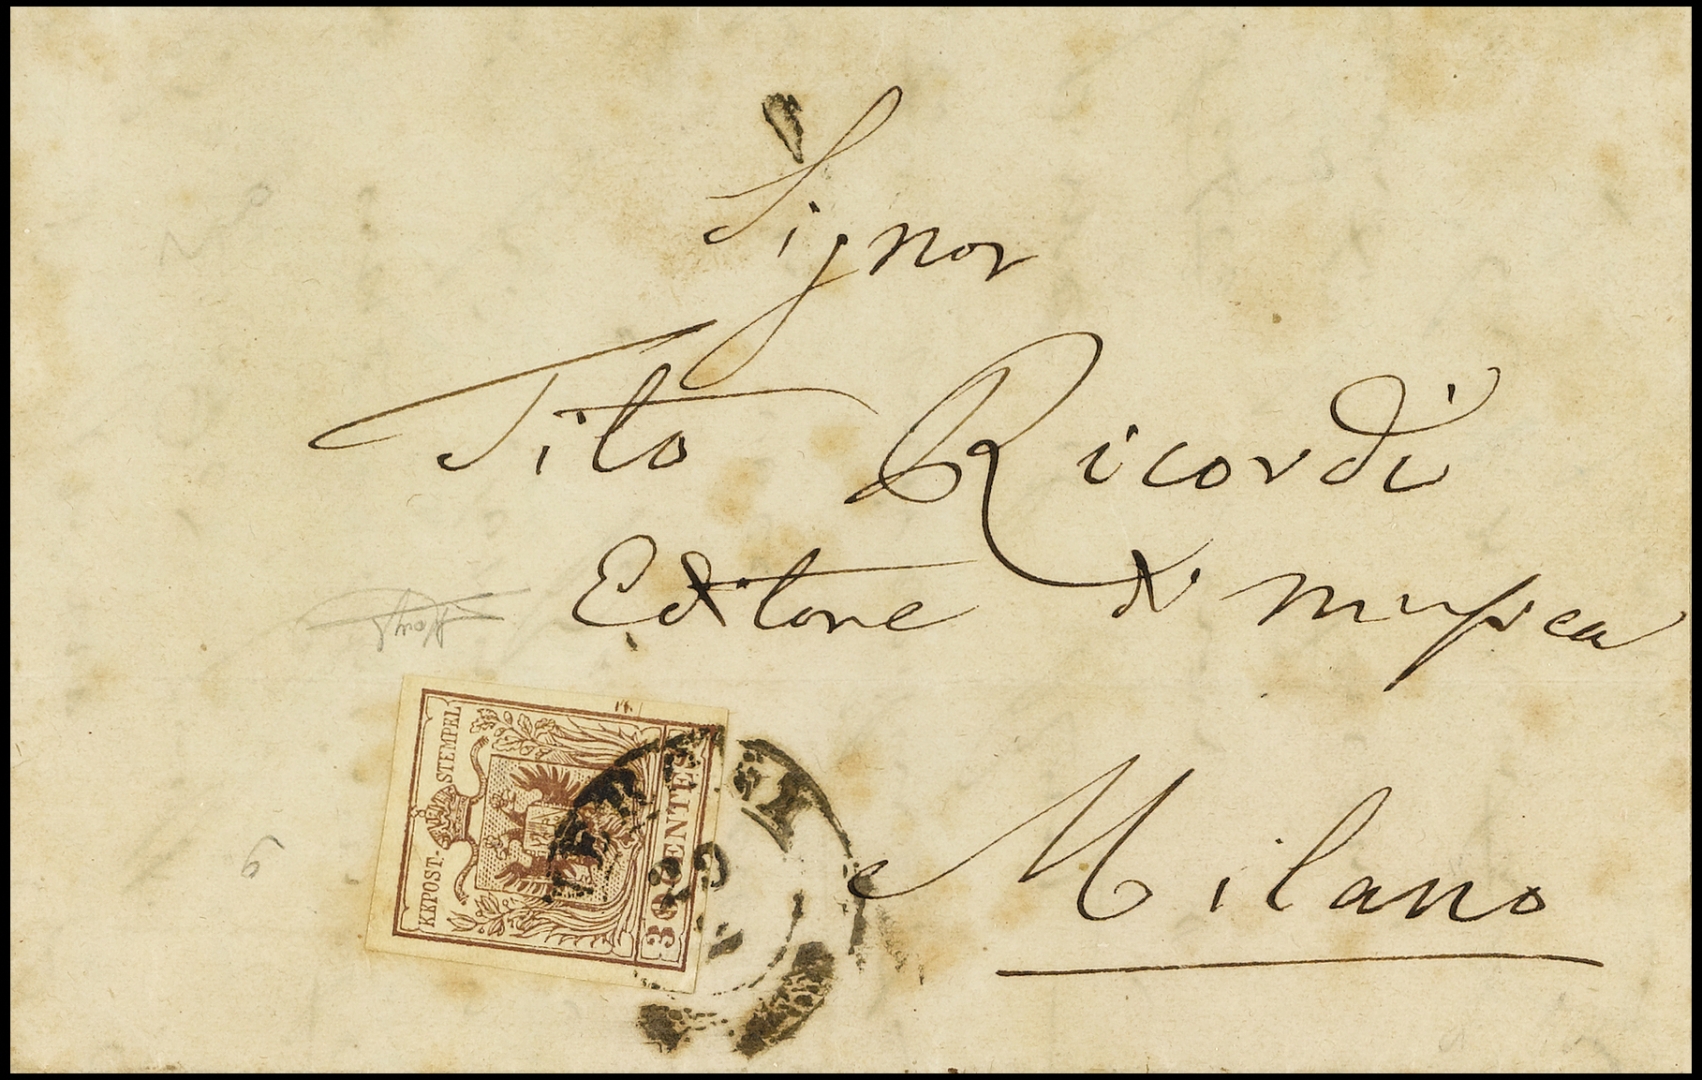 Signor
Tito Ricordi
Editore di musica
Milano
KKPOST-STEMPEL
30 CENTES
6